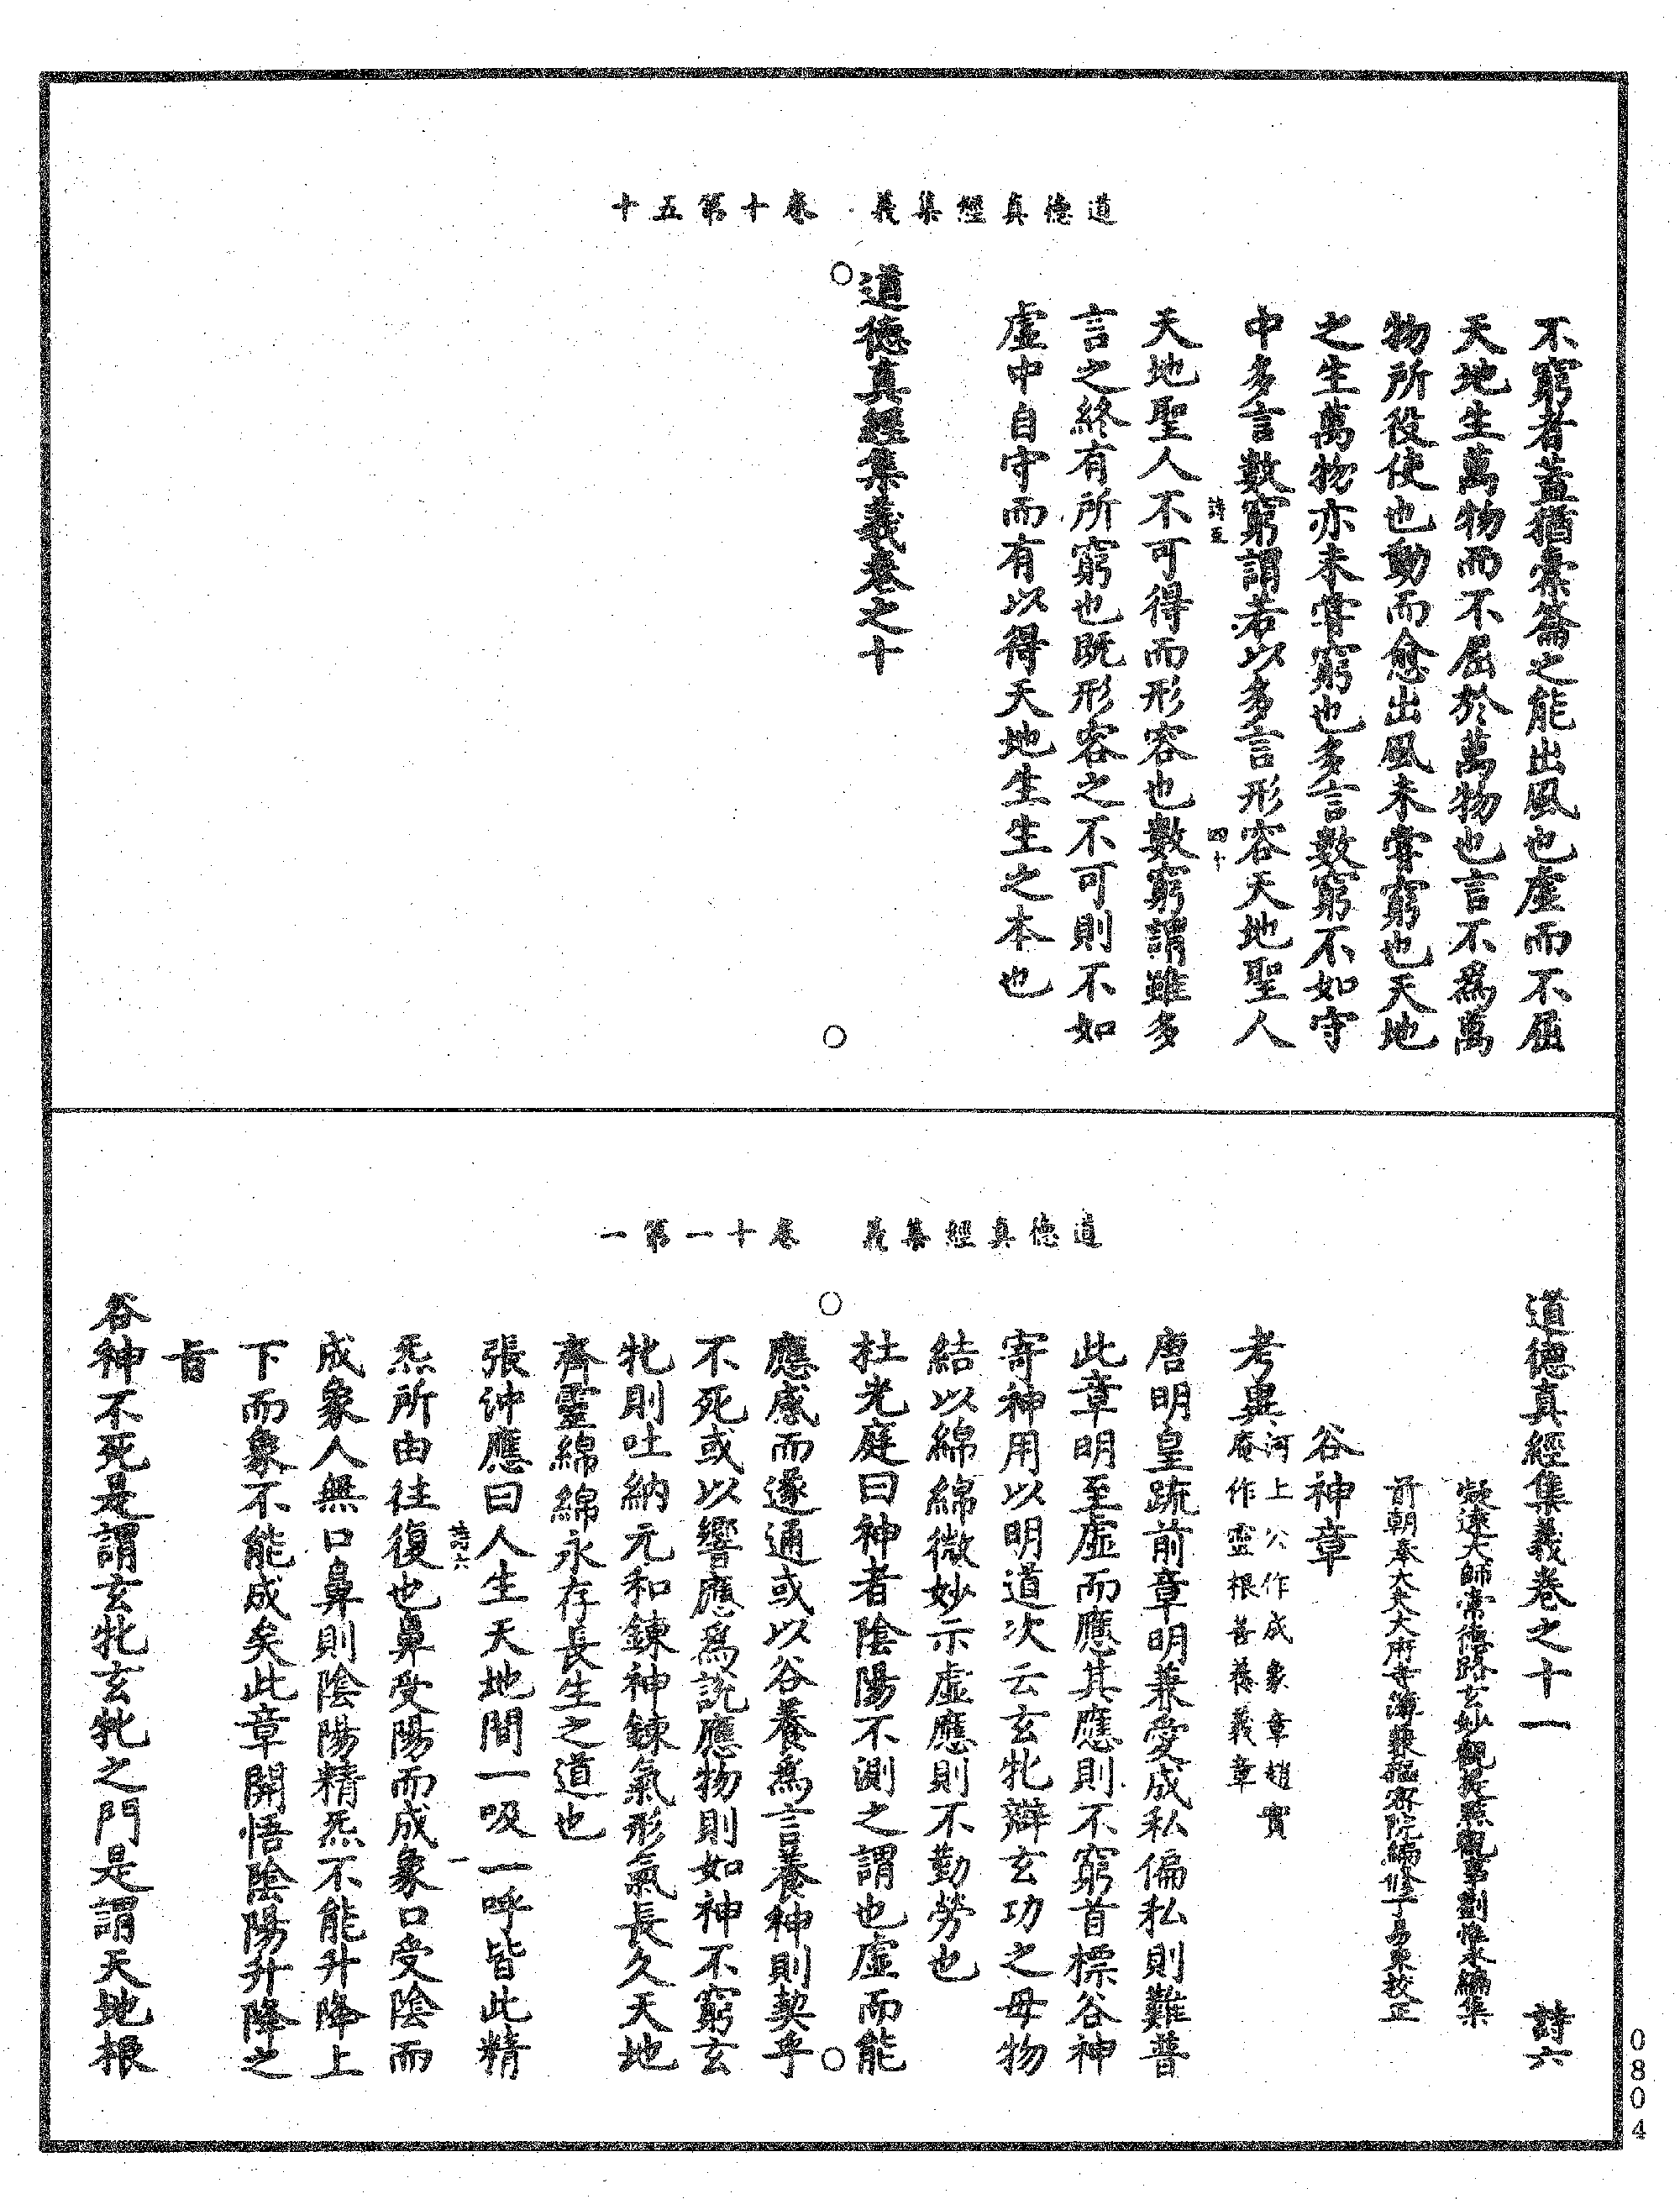 道德真經集義　卷十第五十
不窮者蓋猶橐籥之能出風也虛而不屈
天地生萬物而不屈於萬物也言不為萬
物所役使也動而愈出風未嘗窮也天地
之生萬物亦未嘗窮也多言數窮不如守
中多言數窮謂若以多言形容天地聖人
詩五　四十
天地聖人不可得而形容也數窮謂雖多
言之終有所窮也既形容之不可則不如
虛中自守而有以得天地生生之本也
道德真經集義卷之十
道德真經集義　卷十一第一
道德真經集義卷之十一　詩六
凝遠大師常德路玄妙觀提點觀事劉惟永編集
前朝奉大夫大府寺簿兼樞密院編修丁易東校正
谷神章
考異河上公作成象章趙實
庵作靈根善養義章
唐明皇疏前章明兼愛成私偏私則難普
此章明至虛而應其應則不窮首標谷神
寄神用以明道次云玄牝辯玄功之母物
結以綿綿微妙示虛應則不勤勞也
杜光庭曰神者陰陽不測之謂也虛而能
應感而遂通或以谷養為言養神則契乎
不死或以響應為說應物則如神不窮玄
牝則吐納元和鍊神鍊氣形氣長久天地
齊靈綿綿永存長生之道也
張沖應曰人生天地間一吸一呼皆此精
詩六　一
炁所由往復也鼻受陽而成象口受陰而
成象人無口鼻則陰陽精炁不能升降上
下而象不能成矣此章開悟陰陽升降之
旨
谷神不死是謂玄牝玄牝之門是謂天地根
0804